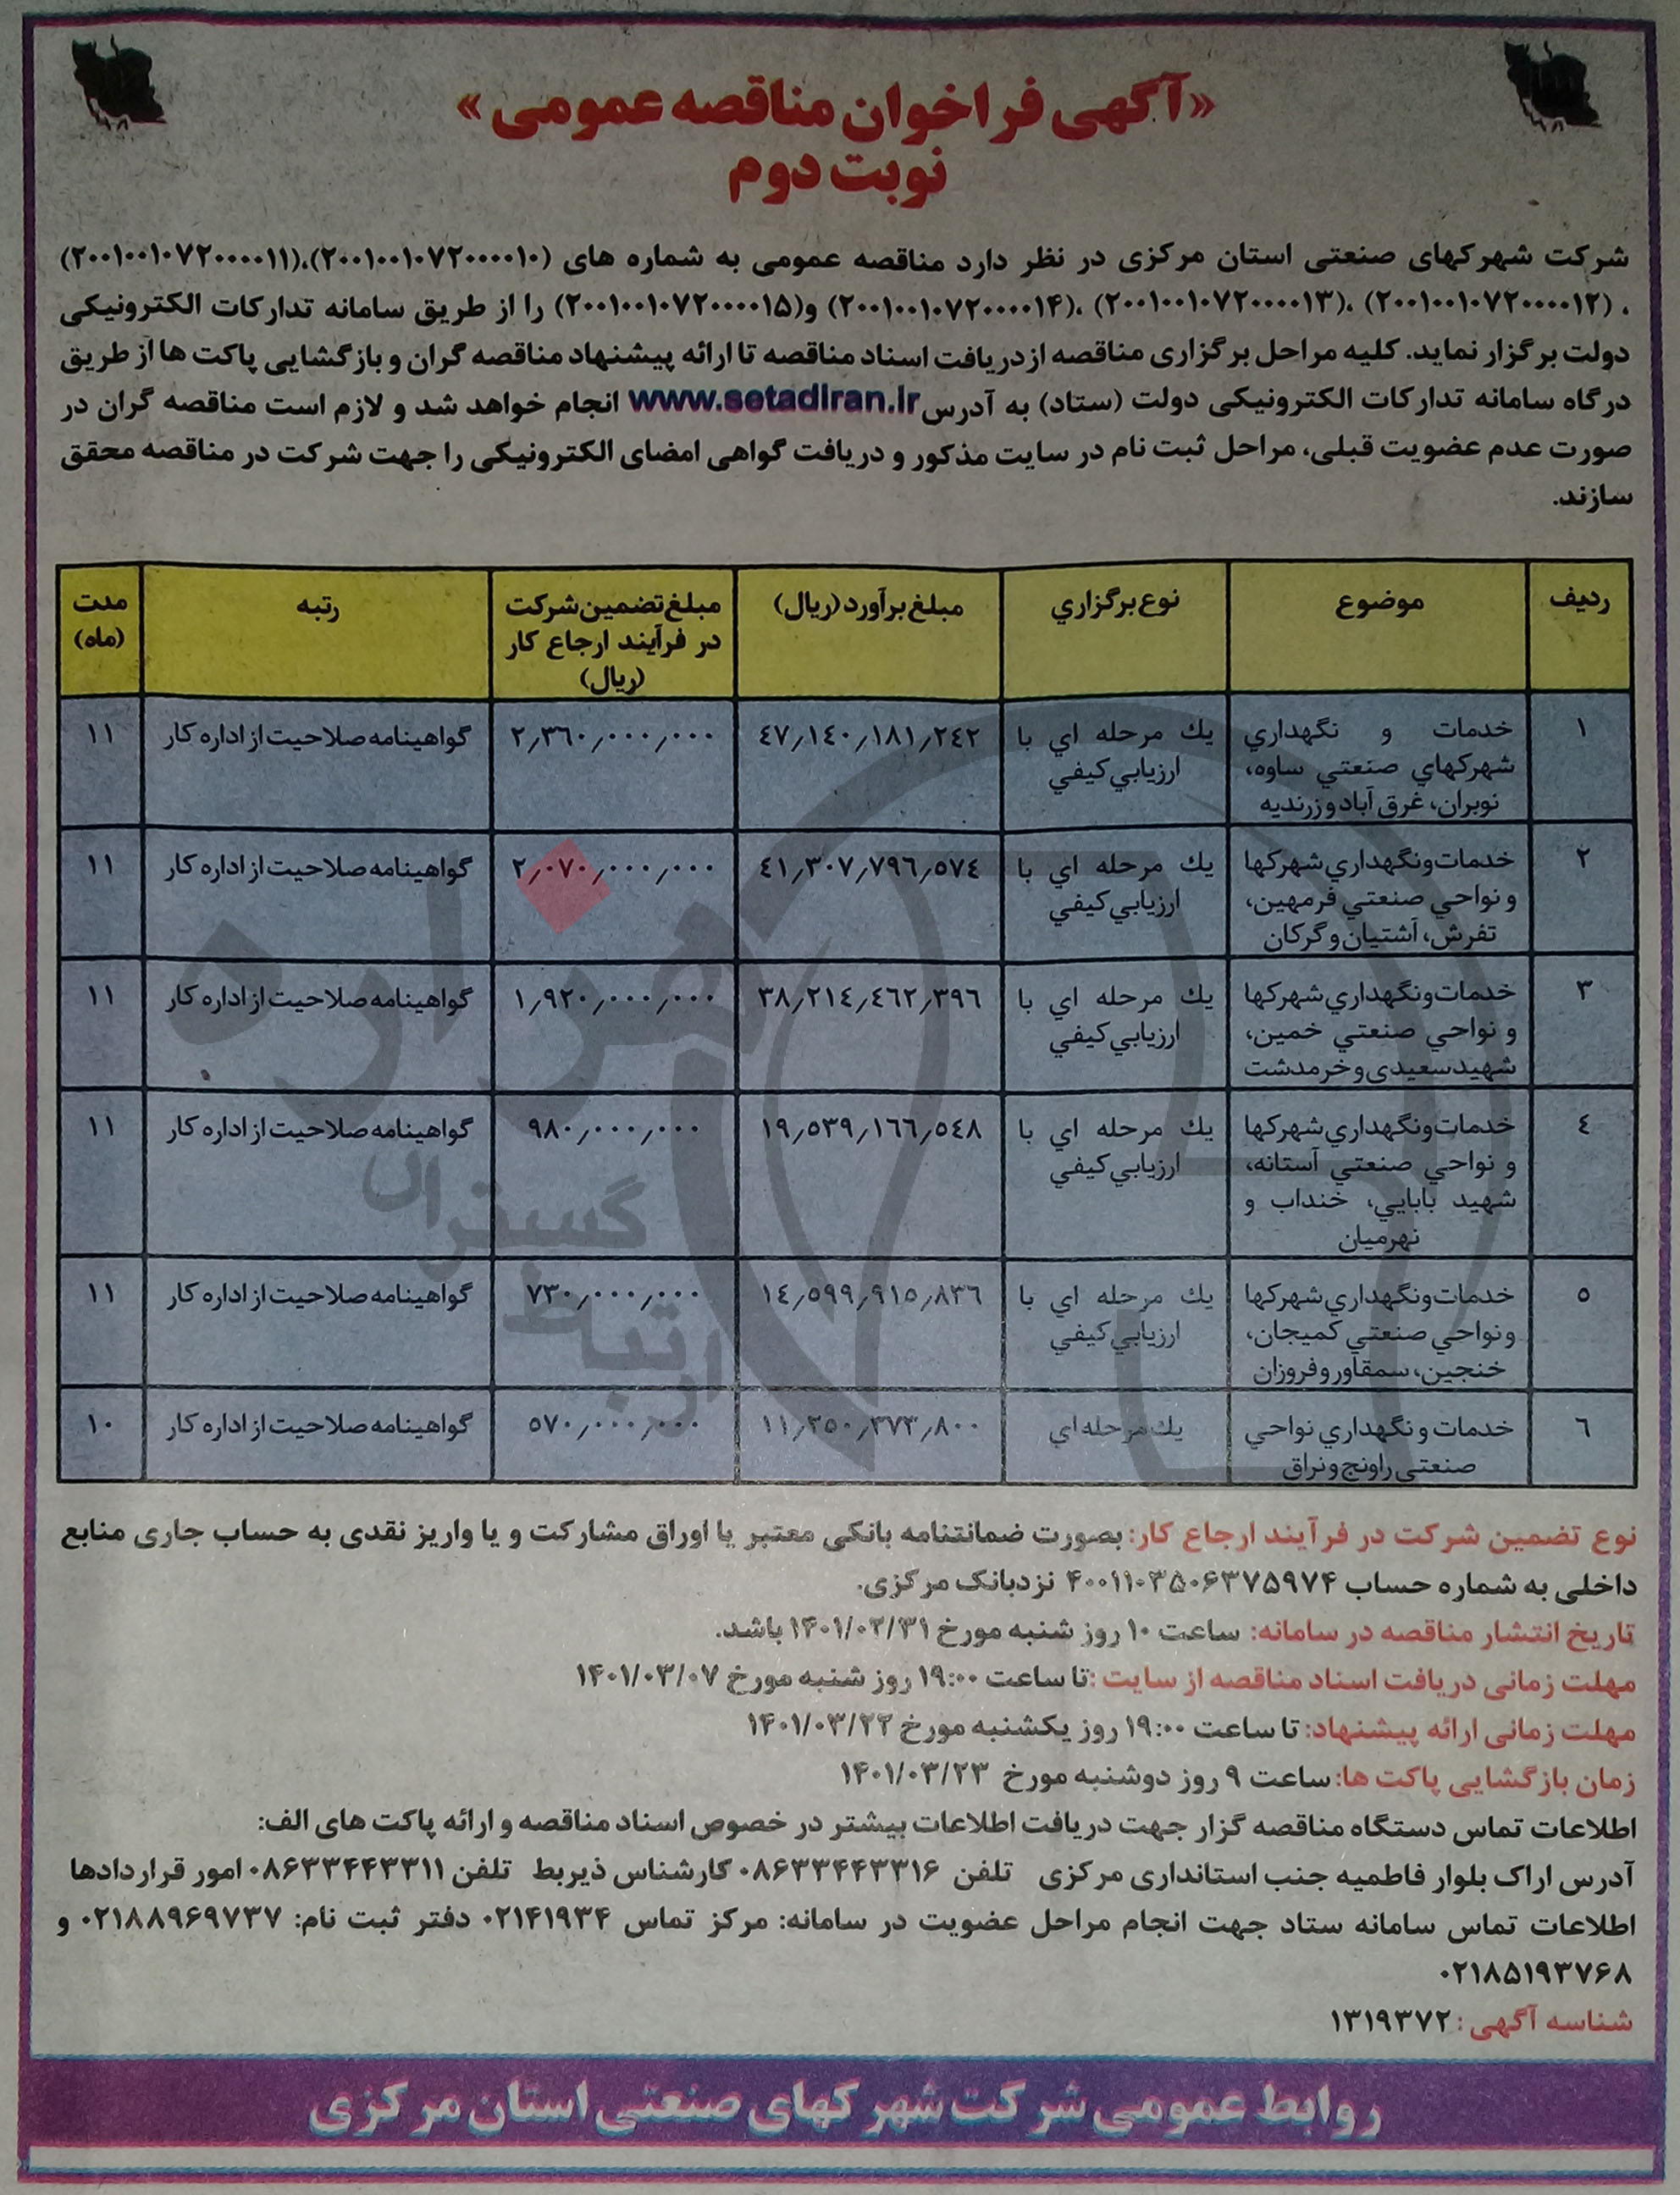 «آگهی فراخوان مناقصه عمومی»
نوبت دوم
شرکت شهرکهای صنعتی استان مرکزی در نظر دارد مناقصه عمومی به شماره های (۲۰۰۱۰۰۱۰۷۲۰۰۰۰۱۰)،(۲۰۰۱۰۰۱۰۷۲۰۰۰۰۱۱)
، (۲۰۰۱۰۰۱۰۷۲۰۰۰۰۱۲) ،(۲۰۰۱۰۰۱۰۷۲۰۰۰۰۱۳) ،(۲۰۰۱۰۰۱۰۷۲۰۰۰۰۱۴) و(۲۰۰۱۰۰۱۰۷۲۰۰۰۰۱۵) را از طریق سامانه تدارکات الکترونیکی
دولت برگزار نماید. کلیه مراحل برگزاری مناقصه از دریافت اسناد مناقصه تا ارائه پیشنهاد مناقصه گران و بازگشایی پاکت ها از طریق
درگاه سامانه تدارکات الکترونیکی دولت (ستاد) به آدرس www.setadiran.ir انجام خواهد شد و لازم است مناقصه گران در
صورت عدم عضویت قبلی، مراحل ثبت نام در سایت مذکور و دریافت گواهی امضای الکترونیکی را جهت شرکت در مناقصه محقق
سازند.
ردیف موضوع نوع برگزاري مبلغ برآورد (ریال) مبلغ تضمین شرکت رتبه مدت
در فرآیند ارجاع کار (ماه)
(ریال)
١ خدمات و نگهداري يك مرحله اي با ٤٧٫١٤٠٫١٨١٫٢٤٢ ٢٫٣٦٠٫٠٠٠٫٠٠٠ گواهینامه صلاحیت از اداره کار ١١
شهرکهاي صنعتي ساوه، ارزیابي کیفي
نوبران، غرق آباد و زرندیه
٢ خدمات و نگهداري شهرکها يك مرحله اي با ٤١٫٣٠٧٫٧٩٦٫٥٧٤ ٢٫٠٧٠٫٠٠٠٫٠٠٠ گواهینامه صلاحیت از اداره کار ١١
و نواحي صنعتي فرمهین، ارزیابي کیفي
تفرش، آشتیان و گرکان
٣ خدمات و نگهداري شهرکها يك مرحله اي با ٣٨٫٢١٤٫٤٦٢٫٣٩٦ ١٫٩٢٠٫٠٠٠٫٠٠٠ گواهینامه صلاحیت از اداره کار ١١
و نواحي صنعتي خمین، ارزیابي کیفي
شهید سعیدی و خرمدشت
٤ خدمات و نگهداري شهرکها يك مرحله اي با ١٩٫٥٣٩٫١٦٦٫٥٤٨ ٩٨٠٫٠٠٠٫٠٠٠ گواهینامه صلاحیت از اداره کار ١١
و نواحي صنعتي آستانه، ارزیابي کیفي
شهید بابایي، خنداب و
نهرمیان
٥ خدمات و نگهداري شهرکها يك مرحله اي با ١٤٫٥٩٩٫٩١٥٫٨٣٦ ٧٣٠٫٠٠٠٫٠٠٠ گواهینامه صلاحیت از اداره کار ١١
و نواحي صنعتي کمیجان، ارزیابي کیفي
خنجین، سمقاور و فروزان
٦ خدمات و نگهداري نواحي يك مرحله اي ١١٫٢٥٠٫٣٧٣٫٨٠٠ ٥٧٠٫٠٠٠٫٠٠٠ گواهینامه صلاحیت از اداره کار ١٠
صنعتي راونج و نراق
هزاره
گستران
ارتباط
نوع تضمین شرکت در فرآیند ارجاع کار: بصورت ضمانتنامه بانکی معتبر یا اوراق مشارکت و یا واریز نقدی به حساب جاری منابع
داخلی به شماره حساب ۴۰۰۱۱۰۳۵۰۶۳۷۵۹۷۴ نزد بانک مرکزی.
تاریخ انتشار مناقصه در سامانه: ساعت ۱۰ روز شنبه مورخ ۱۴۰۱/۰۲/۳۱ باشد.
مهلت زمانی دریافت اسناد مناقصه از سایت :تا ساعت ۱۹:۰۰ روز شنبه مورخ ۱۴۰۱/۰۳/۰۷
مهلت زمانی ارائه پیشنهاد: تا ساعت ۱۹:۰۰ روز یکشنبه مورخ ۱۴۰۱/۰۳/۲۲
زمان بازگشایی پاکت ها: ساعت ۹ روز دوشنبه مورخ ۱۴۰۱/۰۳/۲۳
اطلاعات تماس دستگاه مناقصه گزار جهت دریافت اطلاعات بیشتر در خصوص اسناد مناقصه و ارائه پاکت های الف:
آدرس اراک بلوار فاطمیه جنب استانداری مرکزی تلفن ۰۸۶۳۳۴۴۳۳۱۶ کارشناس ذیربط تلفن ۰۸۶۳۳۴۴۳۳۱۱ امور قراردادها
اطلاعات تماس سامانه ستاد جهت انجام مراحل عضویت در سامانه: مرکز تماس ۰۲۱۴۱۹۳۴ دفتر ثبت نام: ۰۲۱۸۸۹۶۹۷۳۷ و
۰۲۱۸۵۱۹۳۷۶۸
شناسه آگهی : ۱۳۱۹۳۷۲
روابط عمومی شرکت شهرکهای صنعتی استان مرکزی